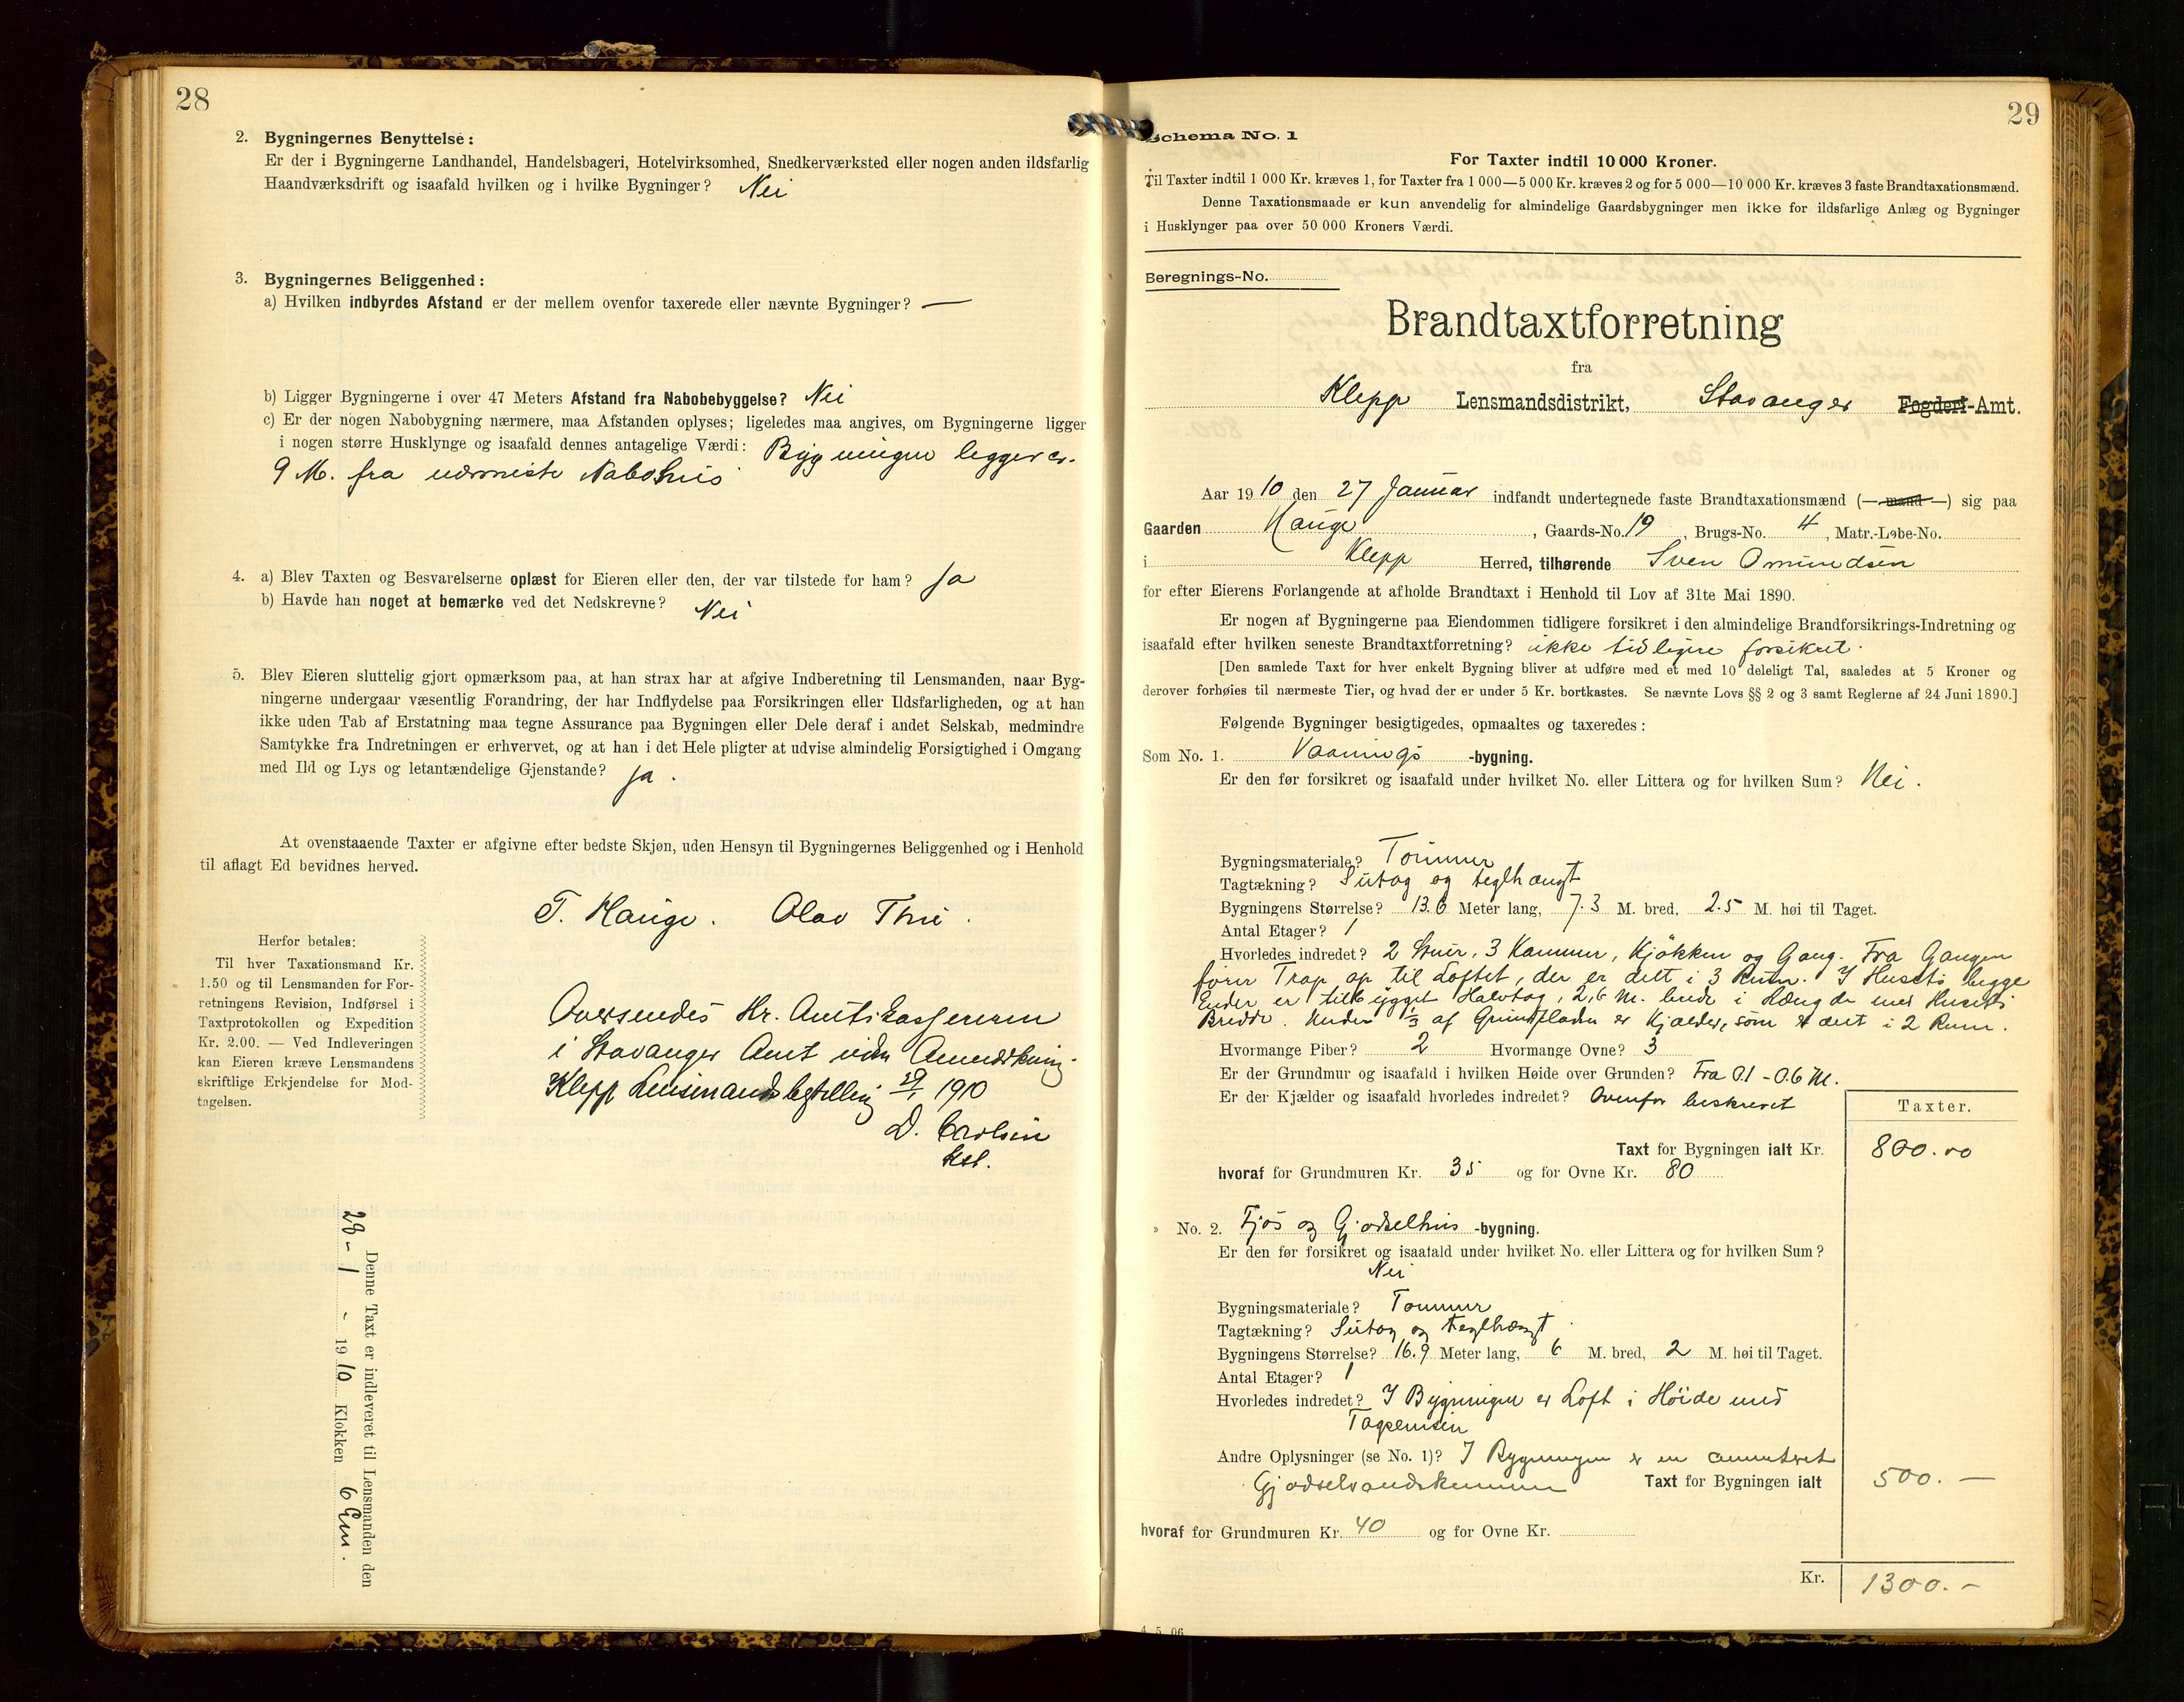 28
2. Bygningernes Benyttelse:
Er der i Bygningerne Landhandel, Handelsbageri, Hotelvirksomhed, Snedkerværksted eller nogen anden ildsfarlig
Haandværksdrift og isaafald hvilken og i hvilke Bygninger? Nei
3. Bygningernes Beliggenhed:
a) Hvilken indbyrdes Afstand er der mellem ovenfor taxerede eller nævnte Bygninger? —
b) Ligger Bygningerne i over 47 Meters Afstand fra Nabobebyggelse? Nei
c) Er der nogen Nabobygning nærmere, maa Afstanden oplyses; ligeledes maa angives, om Bygningerne ligger
i nogen større Husklynge og isaafald dennes antagelige Værdi: Bygningen ligger ca.
9 M. fra nærmeste Nabohus
4. a) Blev Taxten og Besvarelserne oplæst for Eieren eller den, der var tilstede for ham? Ja
b) Havde han noget at bemærke ved det Nedskrevne? Nei
5. Blev Eieren sluttelig gjort opmærksom paa, at han strax har at afgive Indberetning til Lensmanden, naar Byg-
ningerne undergaar væsentlig Forandring, der har Indflydelse paa Forsikringen eller Ildsfarligheden, og at han
ikke uden Tab af Erstatning maa tegne Assurance paa Bygningen eller Dele deraf i andet Selskab, medmindre
Samtykke fra Indretningen er erhvervet, og at han i det Hele pligter at udvise almindelig Forsigtighed i Omgang
med Ild og Lys og letantændelige Gjenstande? Ja.
At ovenstaaende Taxter er afgivne efter bedste Skjøn, uden Hensyn til Bygningernes Beliggenhed og i Henhold
til aflagt Ed bevidnes herved.
T. Hauge. Olav Thu.
Herfor betales:
Til hver Taxationsmand Kr.
1.50 og til Lensmanden for For-
retningens Revision, Indførsel i
Taxtprotokollen og Expedition
Kr. 2.00. — Ved Indleveringen
kan Eieren kræve Lensmandens
skriftlige Erkjendelse for Mod-
tagelsen.
Oversendes Hr. Amtskassereren
i Stavanger Amt uden Anmærkning.
Klepp Lensmandsbestilling 29/1 1910
D. Carlsen
Kst.
Denne Taxt er indleveret til Lensmanden den
28 - 1 - 1910 Klokken 6 Em.
29
Schema No. 1
For Taxter indtil 10 000 Kroner.
Til Taxter indtil 1 000 Kr. kræves 1, for Taxter fra 1 000—5 000 Kr. kræves 2 og for 5 000—10 000 Kr. kræves 3 faste Brandtaxationsmænd.
Denne Taxationsmaade er kun anvendelig for almindelige Gaardsbygninger men ikke for ildsfarlige Anlæg og Bygninger
i Husklynger paa over 50 000 Kroners Værdi.
Beregnings-No.
Brandtaxtforretning
fra
Klepp Lensmandsdistrikt, Stavanger Fogderi-Amt.
Aar 1910 den 27 Januar indfandt undertegnede faste Brandtaxationsmænd (— mand —) sig paa
Gaarden Hauge, Gaards-No. 19, Brugs-No. 4, Matr.-Løbe-No.
i Klepp Herred, tilhørende Sven Omundsen
for efter Eierens Forlangende at afholde Brandtaxt i Henhold til Lov af 31te Mai 1890.
Er nogen af Bygningerne paa Eiendommen tidligere forsikret i den almindelige Brandforsikrings-Indretning og
isaafald efter hvilken seneste Brandtaxtforretning? ikke tidligere forsikret.
[Den samlede Taxt for hver enkelt Bygning bliver at udføre med et med 10 deleligt Tal, saaledes at 5 Kroner og
derover forhøies til nærmeste Tier, og hvad der er under 5 Kr. bortkastes. Se nævnte Lovs §§ 2 og 3 samt Reglerne af 24 Juni 1890.]
Følgende Bygninger besigtigedes, opmaaltes og taxeredes:
Som No. 1. Vaanings -bygning.
Er den før forsikret og isaafald under hvilket No. eller Littera og for hvilken Sum? Nei.
Bygningsmateriale? Tømmer
Tagtækning? Sutag og teglhængt
Bygningens Størrelse? 13.6 Meter lang, 7.3 M. bred, 2.5 M. høi til Taget.
Antal Etager? 1
Hvorledes indredet? 2 Stuer, 3 Kammer, Kjøkken og Gang. Fra Gangen
fører Trap op til Loftet, der er delt i 3 Rum. I Husets begge
Ender er tilbygget Halvtag, 2,6 M. brede i Længde med Husets
Bredde. Under 1/3 af Grundfladen er Kjælder, som er delt i 2 Rum.
Hvormange Piber? 2 Hvormange Ovne? 3
Er der Grundmur og isaafald i hvilken Høide over Grunden? Fra 0.1 - 0.6 M.
Er der Kjælder og isaafald hvorledes indredet? Ovenfor beskrevet
Taxter.
Taxt for Bygningen ialt Kr. 800.00
hvoraf for Grundmuren Kr. 35 og for Ovne Kr. 80
» No. 2. Fjøs og Gjødselhus -bygning.
Er den før forsikret og isaafald under hvilket No. eller Littera og for hvilken Sum?
Nei
Bygningsmateriale? Tømmer
Tagtækning? Sutag og teglhængt
Bygningens Størrelse? 16.9 Meter lang, 6 M. bred, 2 M. høi til Taget.
Antal Etager? 1
Hvorledes indredet? I Bygningen er Loft i Høide med
Tagremsen
Andre Oplysninger (se No. 1)? I Bygningen er en cementeret
Gjødselvandskummen Taxt for Bygningen ialt 500. —
hvoraf for Grundmuren Kr. 40 og for Ovne Kr.
Kr. 1300. -
4. 5. 06